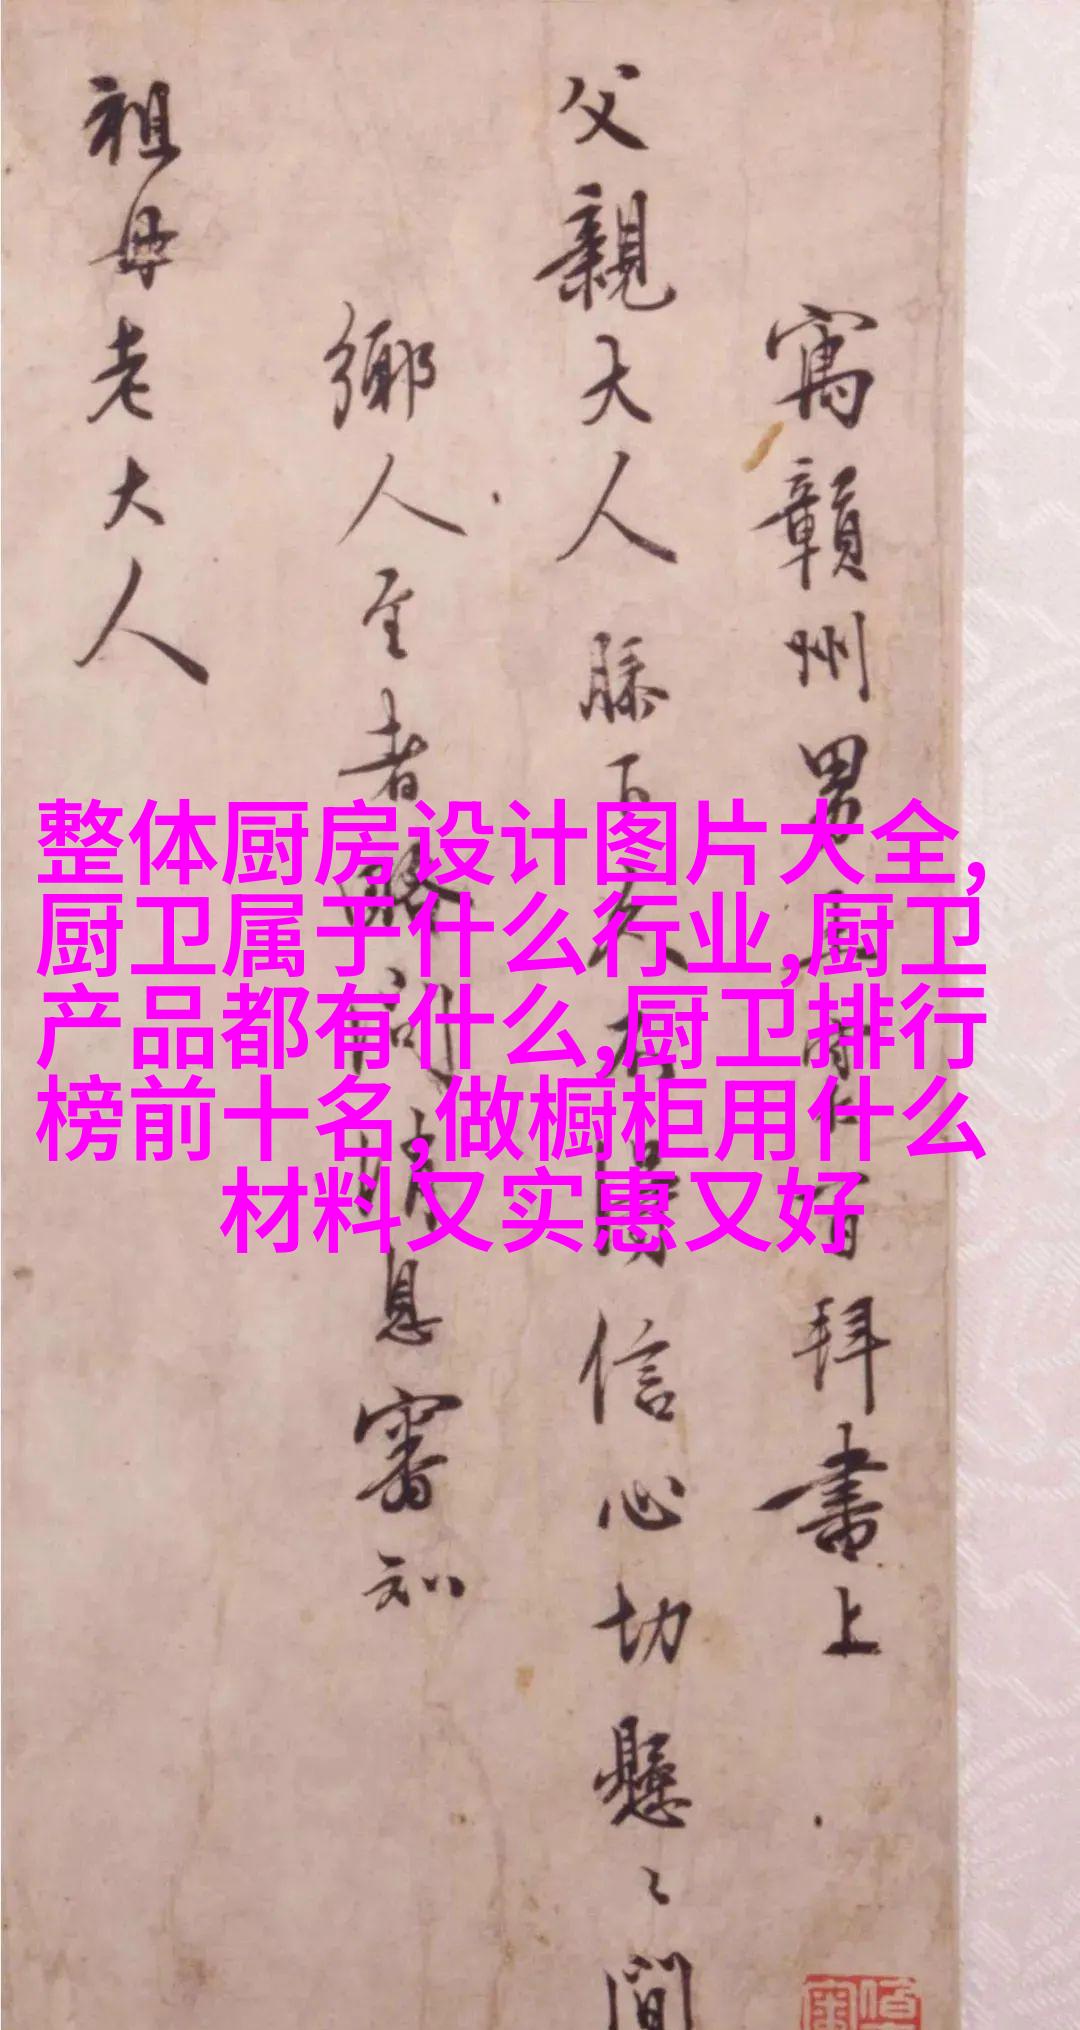 整体厨房设计图片大全,
厨卫属于什么行业,厨卫
产品都有什么,厨卫排行
榜前十名,做橱柜用什么
材料又实惠又好
寓贛州男王守仁百拜書上
父親大人膝下久不得信心切懸〻間
鄉人至者略問消息審知
祖母老大人